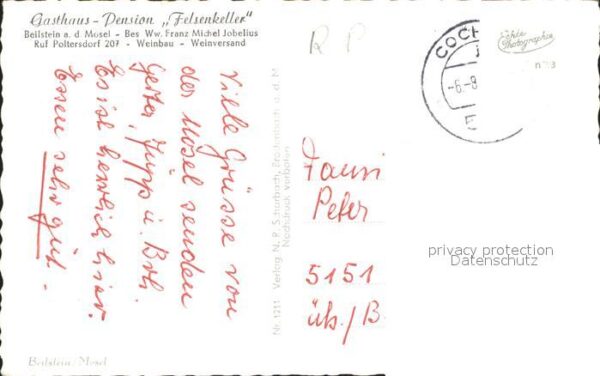 Gasthaus - Pension „Felsenkeller"
Beilstein a. d Mosel - Bes Ww. Franz Michel Jobelius
Ruf Poltersdorf 207 - Weinbau - Weinversand
Viele Grüsse von
der Mosel senden
Jupp u.
Es ist herrlich hier.
Essen sehr gut.
Beilstein/Mosel
Nr. 1211 Verlag N. P. Schurbach, Brodenbach a. d. M
Nachdruck Verboten
R P
COCH
-6.-8
Echte
Photographie
Peter
5151
üb./B.
privacy protection
Datenschutz